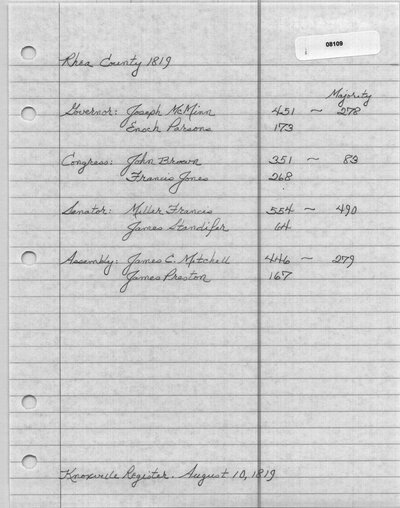 08109
Rhea County 1819
Majority
Governor: Joseph McMinn 451 ~ 278
Enoch Parsons 173
Congress: John Brown 351 ~ 83
Francis Jones 268
Senator: Miller Francis 554 ~ 490
James Standifer 64
Assembly: James C. Mitchell 446 ~ 279
James Preston 167
Knoxville Register. August 10, 1819